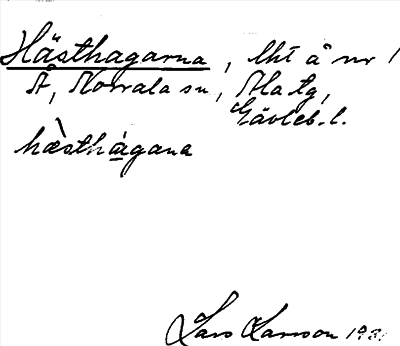 Hästhagarna, lht å nr 1
Å, Norrala sn, Ala tg,
Gävleb. l.
hæ̀sthágana
Lars Larsson 193